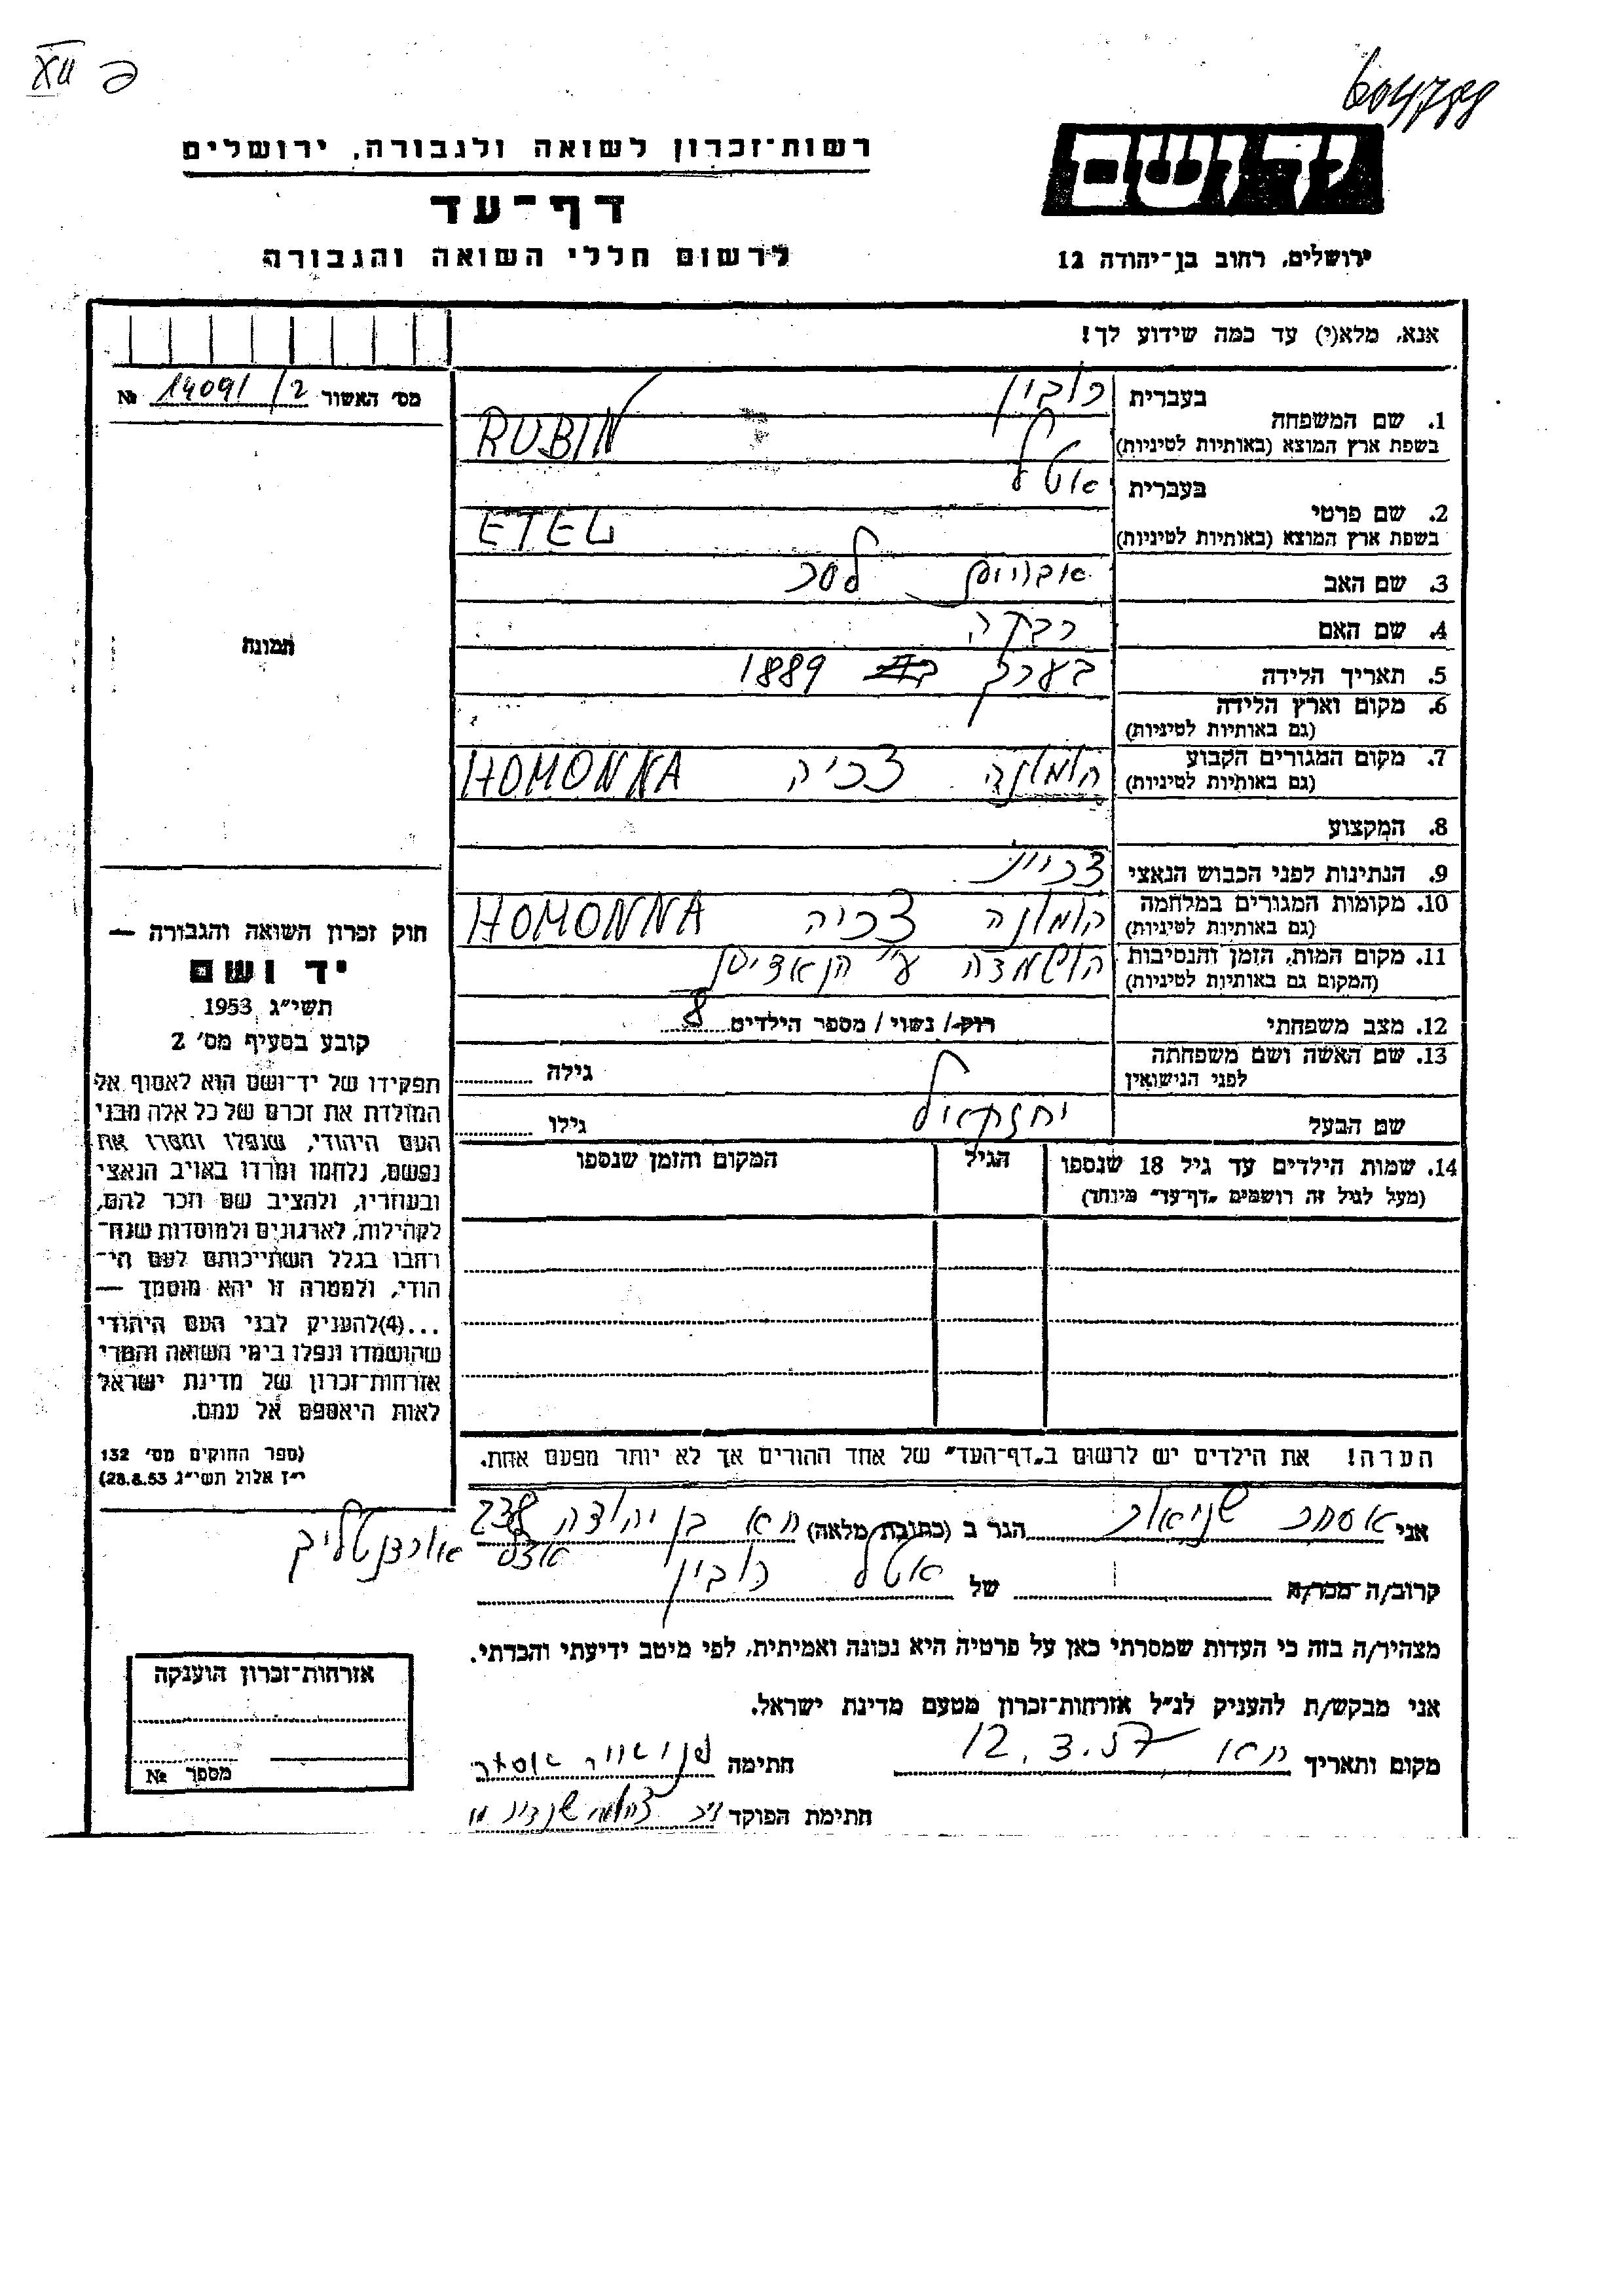 XII
604788
רשות־זכרון לשואה ולגבורה, ירושלים
דף־עד
לרשום חללי השואה והגבורה
יד ושם
ירושלים, רחוב בן־יהודה 12
אנא, מלא(י) עד כמה שידוע לך!
מס׳ האשור 14091/2 №
תמונה
1. שם המשפחה
בעברית רובין
בשפת ארץ המוצא (באותיות לטיניות) RUBIN
2. שם פרטי
בעברית אטל
בשפת ארץ המוצא (באותיות לטיניות) ETEL
3. שם האב
4. שם האם רבקה
5. תאריך הלידה בערך 1889
6. מקום וארץ הלידה
(גם באותיות לטיניות)
7. מקום המגורים הקבוע הומונה צכיה HOMONNA
(גם באותיות לטיניות)
8. המקצוע
9. הנתינות לפני הכבוש הנאצי
10. מקומות המגורים במלחמה הומונה צכיה HOMONNA
(גם באותיות לטיניות)
11. מקום המות, הזמן והנסיבות הושמדה ע״י הנאציים
(המקום גם באותיות לטיניות)
12. מצב משפחתי רוק / נשוי / מספר הילדים 8
13. שם האשה ושם משפחתה
לפני הנישואין גילה
שם הבעל יחזקאל גילו
14. שמות הילדים עד גיל 18 שנספו
(מעל לגיל זה רושמים „דף־עד״ מיוחד)
הגיל
המקום והזמן שנספו
הערה! את הילדים יש לרשום ב„דף־העד״ של אחד ההורים אך לא יותר מפעם אחת.
חוק זכרון השואה והגבורה —
יד ושם
תשי״ג 1953
קובע בסעיף מס׳ 2
תפקידו של יד־ושם הוא לאסוף אל
המולדת את זכרם של כל אלה מבני
העם היהודי, שנפלו ומסרו את
נפשם, נלחמו ומרדו באויב הנאצי
ובעוזריו, ולהציב שם וזכר להם,
לקהילות, לארגונים ולמוסדות שנח־
רחבו בגלל השתייכותם לעם הי־
הודי, ולמטרה זו יהא מוסמך —
...(4) להעניק לבני העם היהודי
שהושמדו ונפלו בימי השואה והמרי
אזרחות־זכרון של מדינת ישראל
לאות היאספם אל עמם.
(ספר החוקים מס׳ 132
י״ז אלול תשי״ג 28.8.53)
אני אסתר הגר ב (כתובת מלאה) ת״א בן יהודה 238
אצל
קרוב/ה מכר/ה של אטל רובין
מצהיר/ה בזה כי העדות שמסרתי כאן על פרטיה היא נכונה ואמיתית, לפי מיטב ידיעתי והכרתי.
אני מבקש/ת להעניק לנ״ל אזרחות־זכרון מטעם מדינת ישראל.
מקום ותאריך ת״א 12.3.57 חתימה
חתימת הפוקד
אזרחות־זכרון הוענקה
מספר №